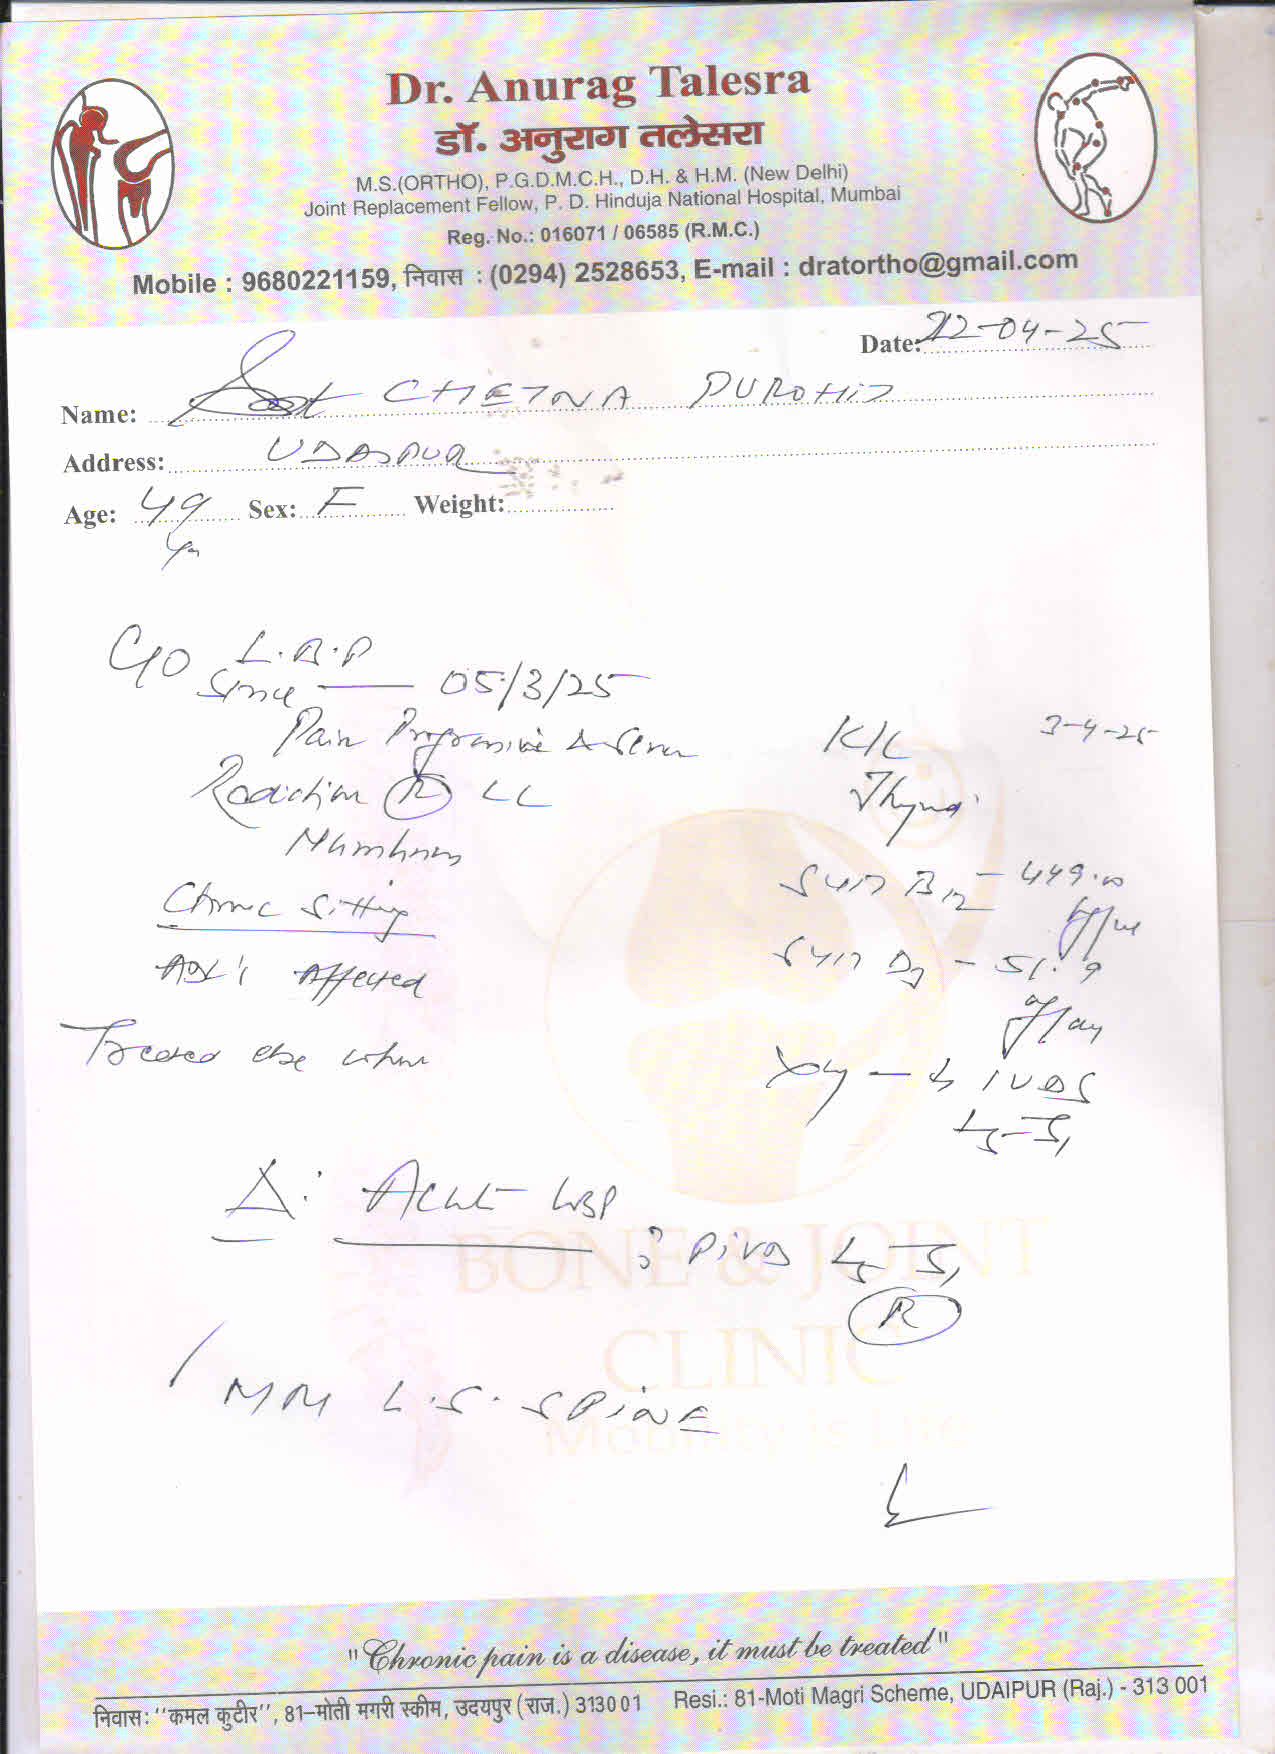 Dr. Anurag Talesra
डॉ. अनुराग तलेसरा
M.S.(ORTHO), P.G.D.M.C.H., D.H. & H.M. (New Delhi)
Joint Replacement Fellow, P. D. Hinduja National Hospital, Mumbai
Reg. No.: 016071 / 06585 (R.M.C.)
Mobile : 9680221159, निवास : (0294) 2528653, E-mail : dratortho@gmail.com
Date: 22-04-25
Name: CHETNA PUROHIT
Address: UDAIPUR
Age: 49 Sex: F Weight:
yr
C/O L.B.P
Since — 05/3/25
Pain Progressive & Severe
Radiation (R) LL
Numbness
Chronic Sitting
ADL's Affected
Treated else where
K/C 3-4-25
Thyroid
Vit B12 - 449.0
Vit D3 - 51.9
Xray - ↓ IVDS
L5-S1
Δ: Acute LBP
? PIVD L5-S1
(R)
MRI L.S. SPINE
BONE & JOINT
CLINIC
Mobility is Life
"Chronic pain is a disease, it must be treated"
निवास: "कमल कुटीर", 81-मोती मगरी स्कीम, उदयपुर (राज.) 313001 Resi.: 81-Moti Magri Scheme, UDAIPUR (Raj.) - 313 001